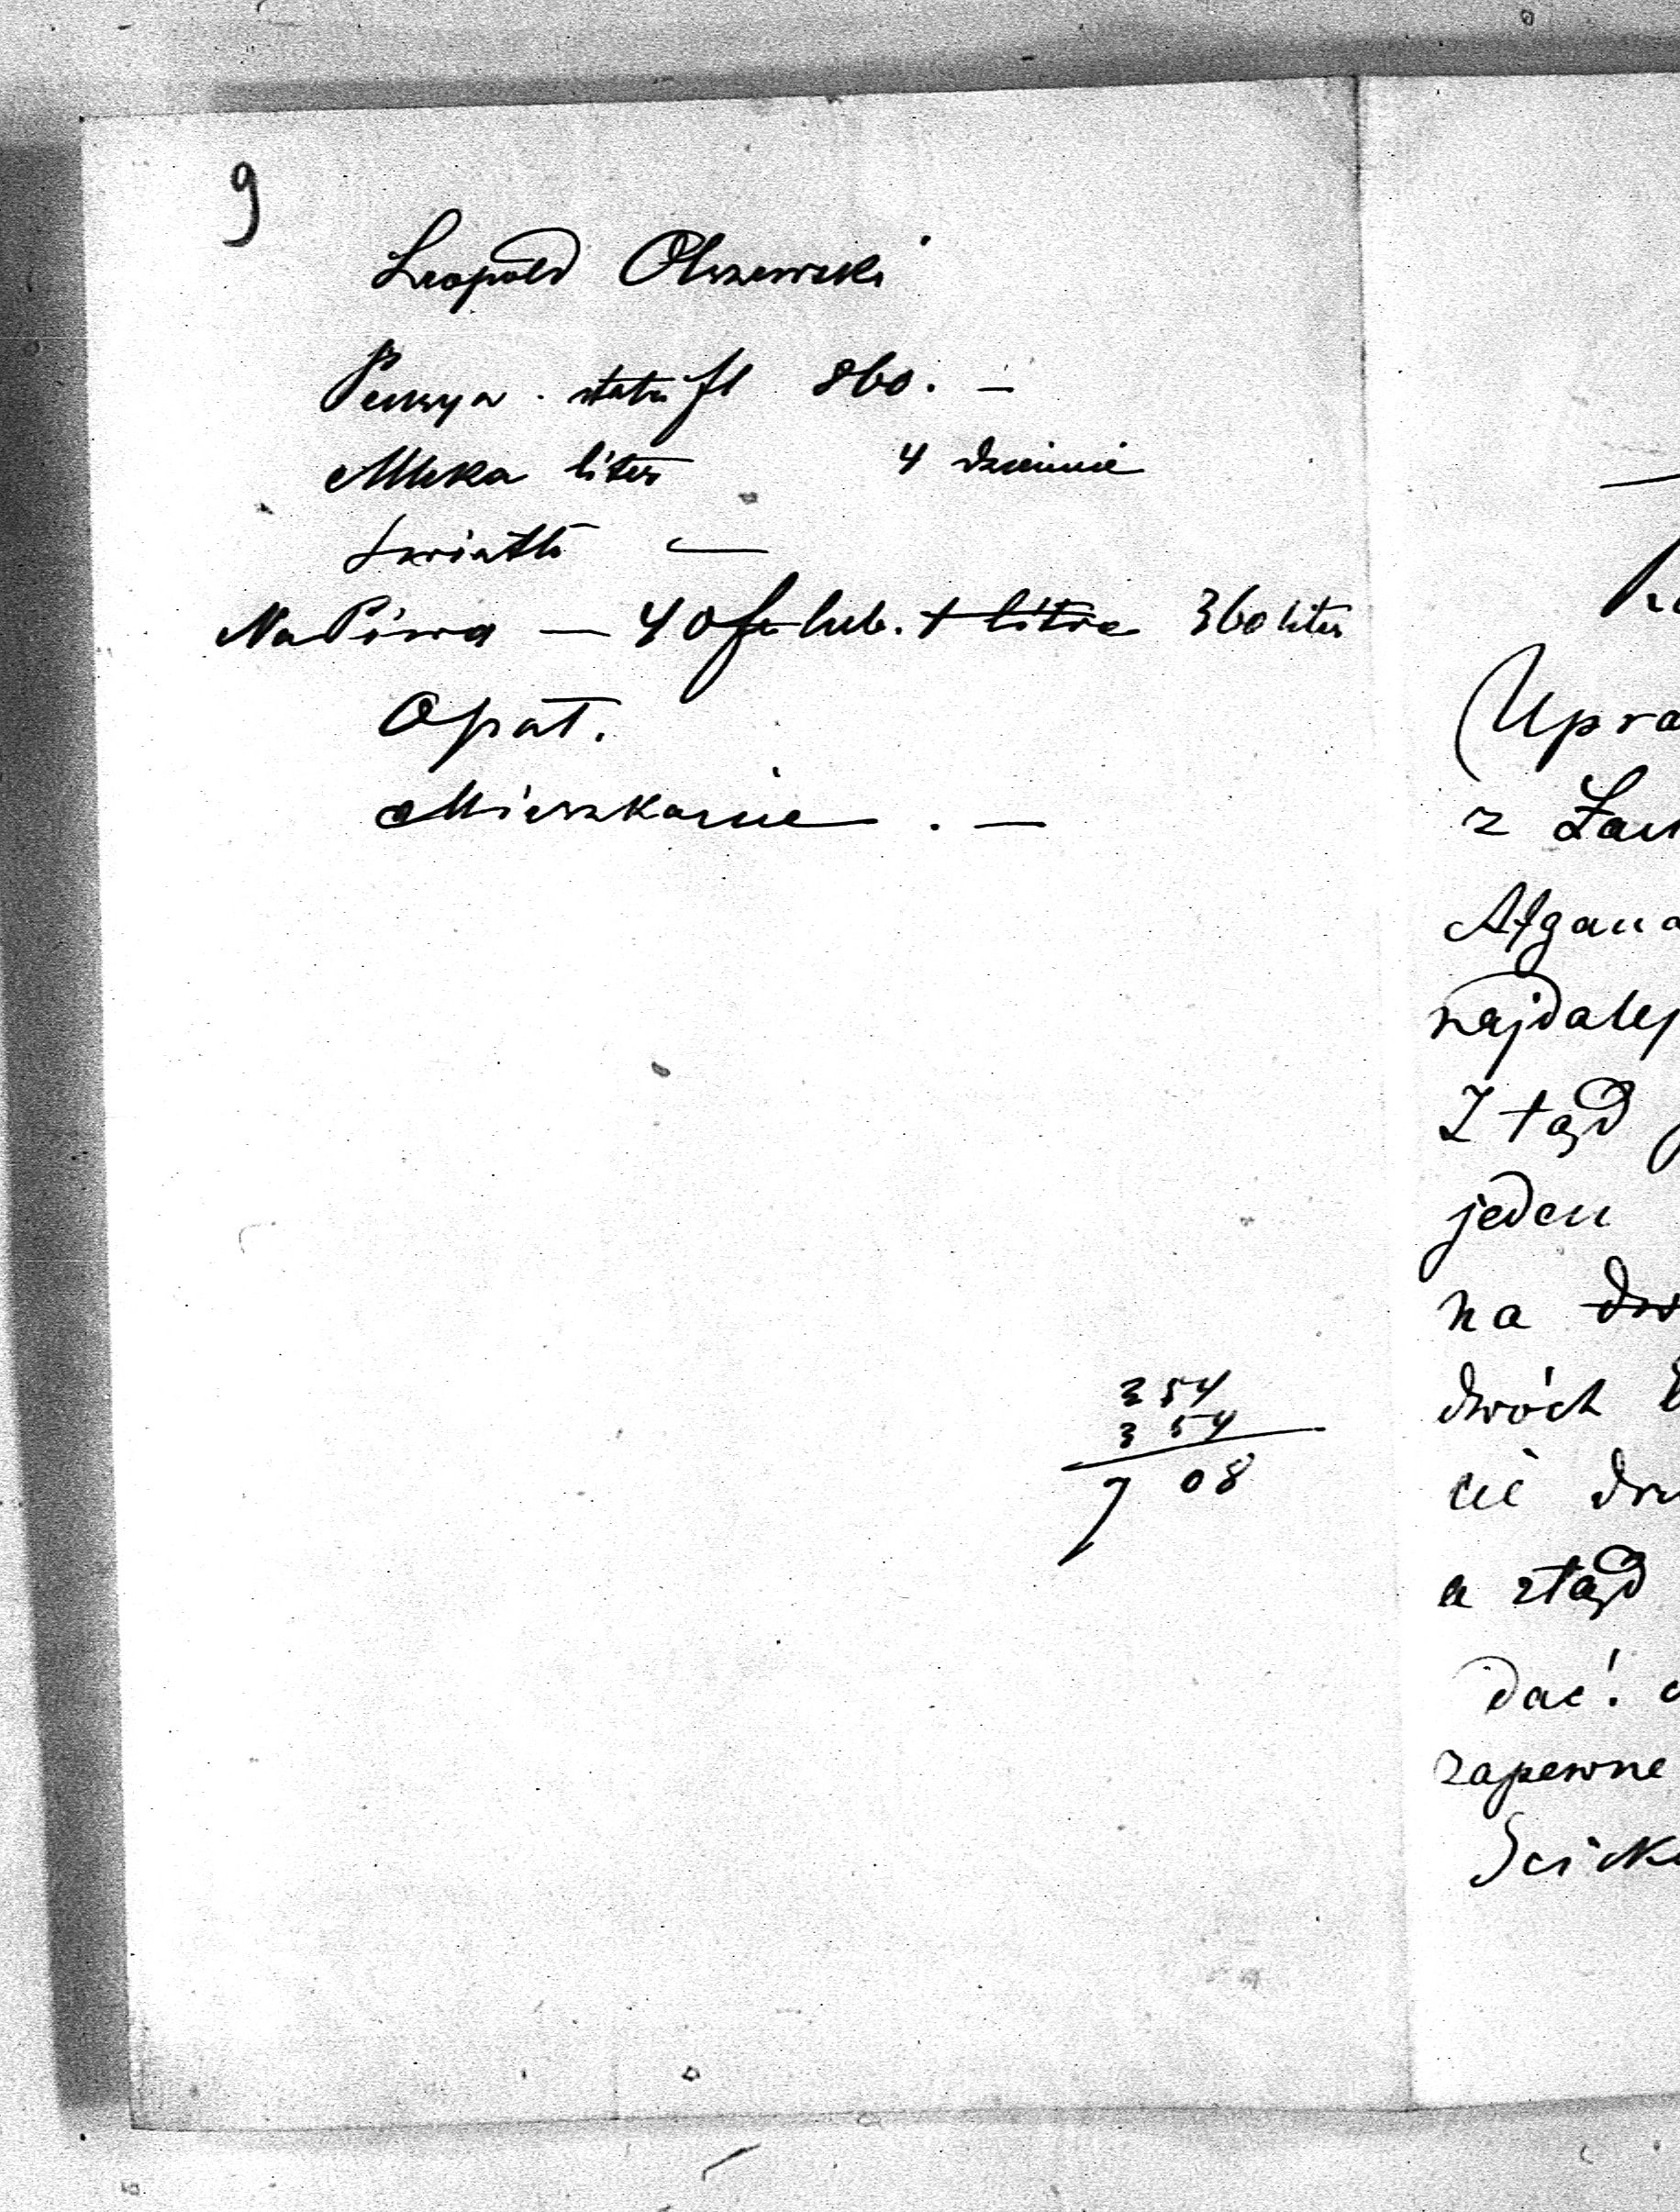 9
Leopold Olszewski
Pensya. stała fl 860. —
Mleka liter 4 dziennie
Światło —
Na Piwo — 40 fl lub. 1 litre 360 liter
Opał.
Mieszkanie . —
354
354
708
(Upra
z Zac
Afgana
najdalej
Ztąd
jeden
na
dwóch
cie
a ztąd
dać!
zapewne